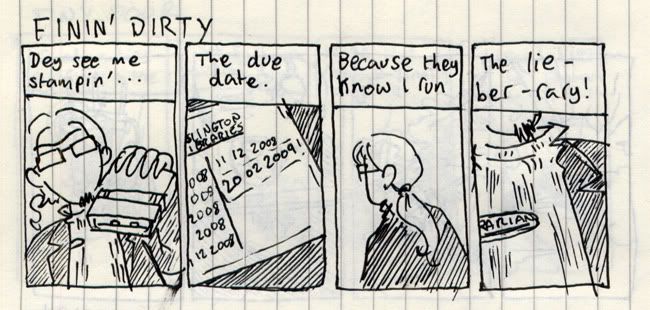 FININ' DIRTY
Dey see me
stampin'...
The due
date.
SLINGTON
LIBRARIES
11 12 2008
20 02 2009
008
008
2008
2008
1 12 2008
Because they
know I run
The lie-
ber-rary!
RARIAN